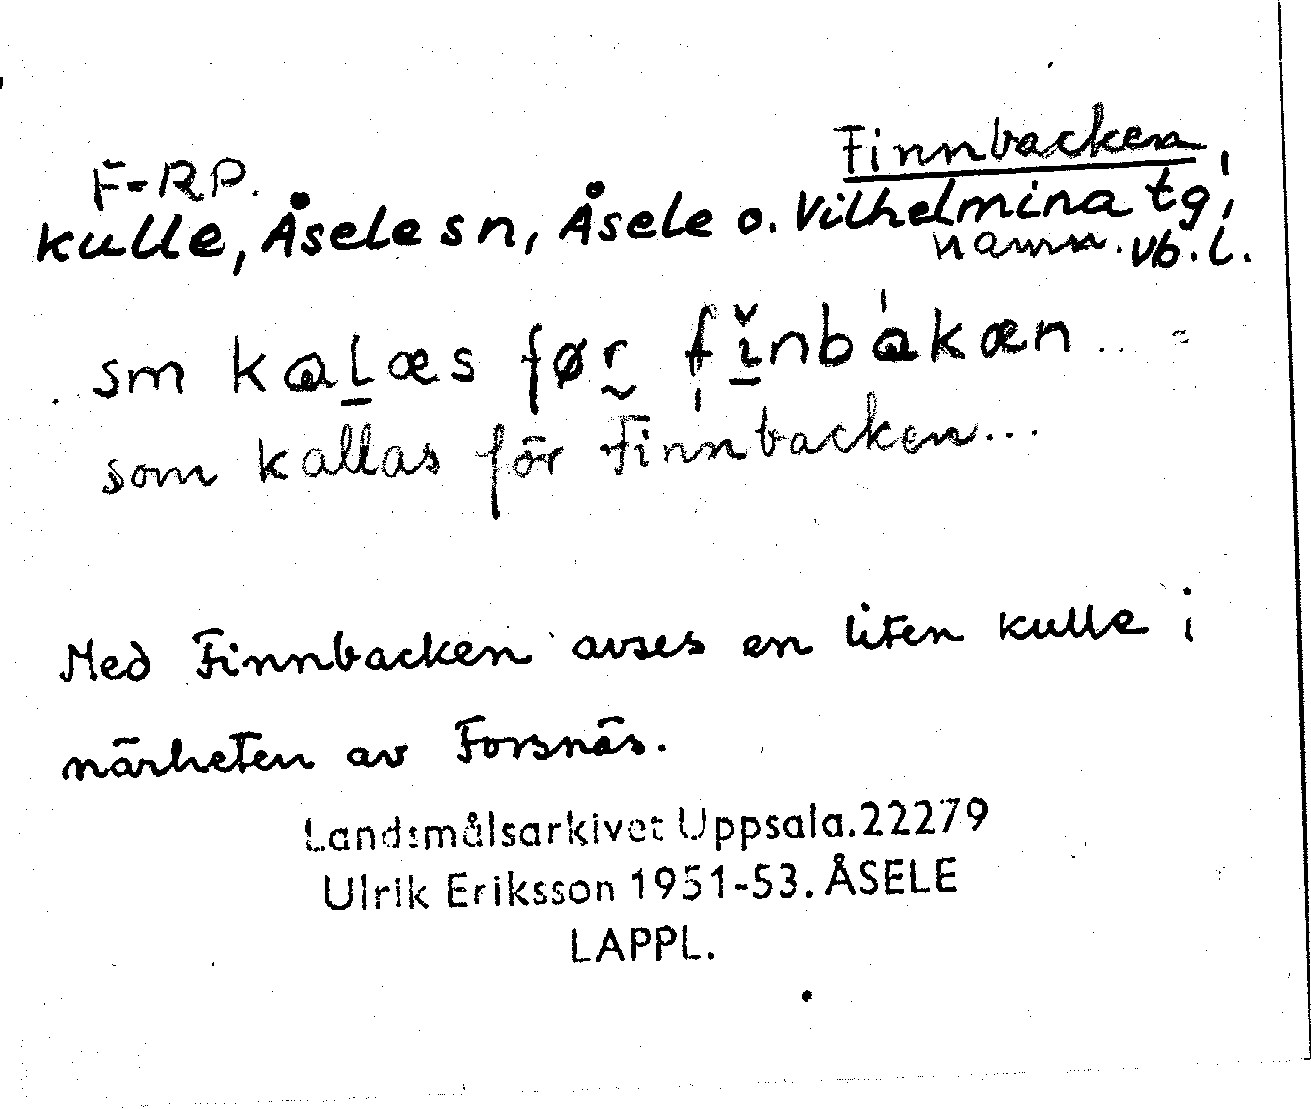 Finnbacken,
F-RP.
kulle, Åsele sn, Åsele o. Vilhelmina tg,
namn. Vb. l.
sm kalæs før finbakæn.. =
som kallas för Finnbacken...
Med Finnbacken avses en liten kulle i
närheten av Forsnäs.
Landsmålsarkivet Uppsala.22279
Ulrik Eriksson 1951-53. ÅSELE
LAPPL.